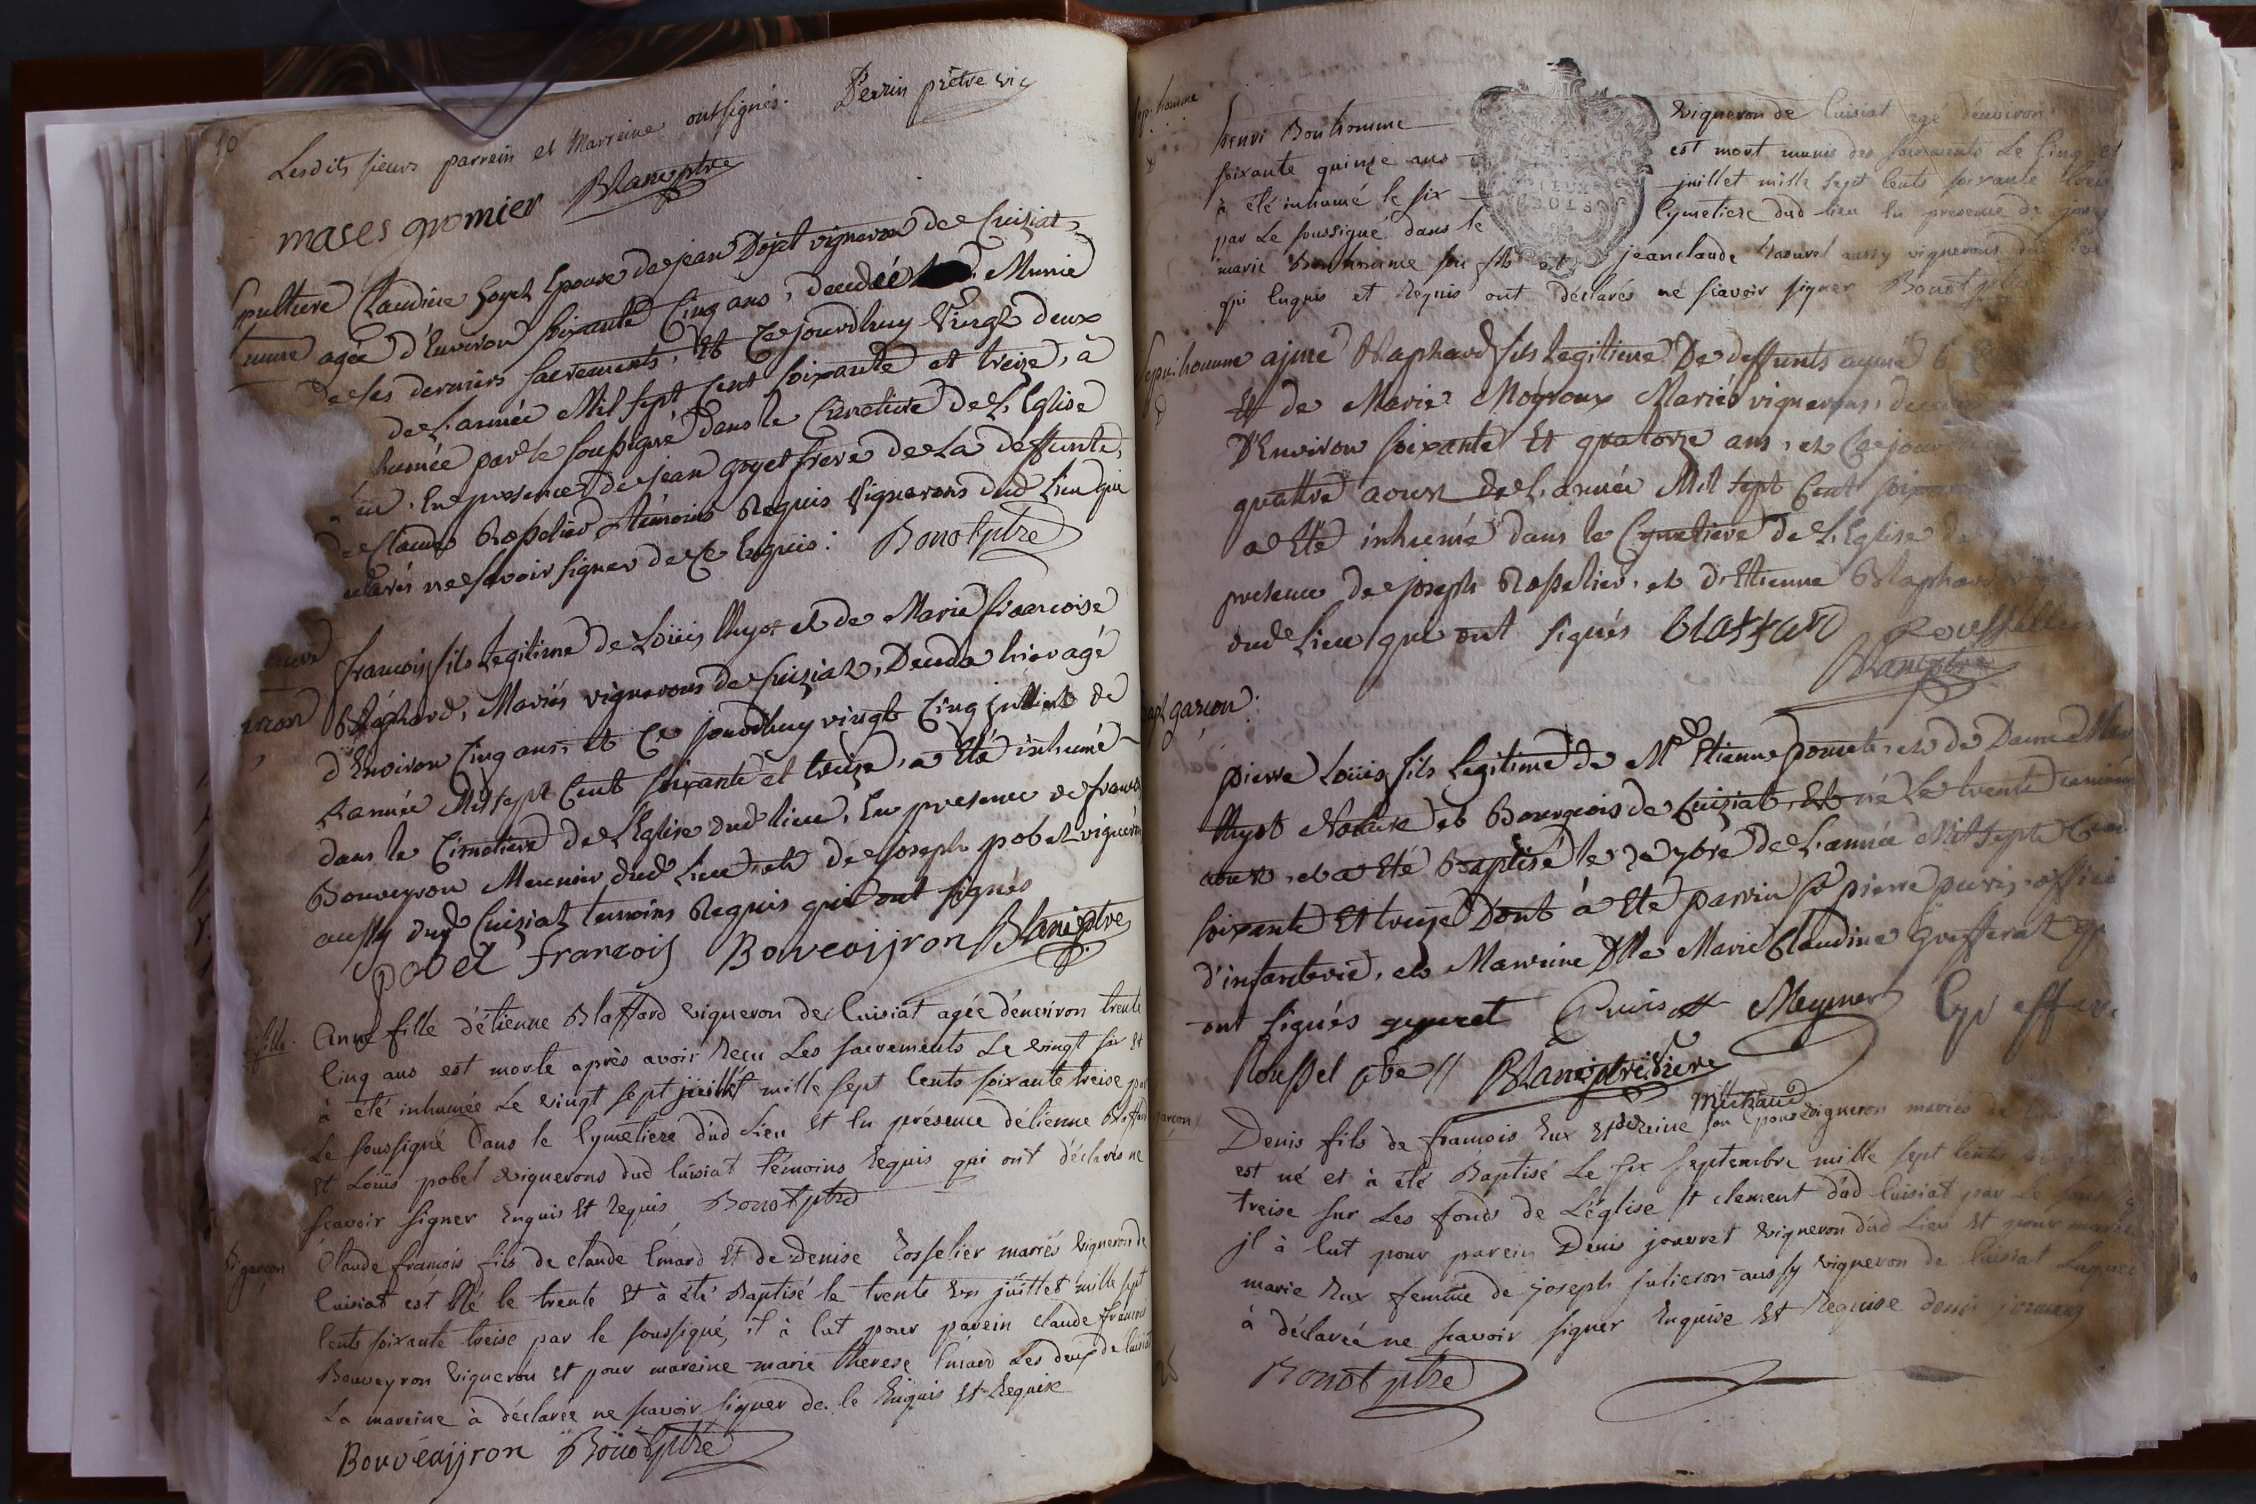 10
Lesdits sieurs parrein et Marreine ont signés. Perrin prêtre vic
mases gromier Blanc ptre
sepulture Claudine Goyet Epouse de jean Dojat vigneron de Cuiziat
femme agée d'Environ soixante Cinq ans, decedée Munie
de ses derniers sacrements, Et Ce jourdhuy vingt deux
de L'année Mil sept Cent soixante et treize, à
humée par le soussigné dans le Cimetiere de L'Eglise
Lieu, En presence de jean goyet frere de La deffunte,
de Claude Rosselier temoins Requis vignerons dud Lieu qui
clarés ne sçavoir signer de Ce Enquis. Bonot ptre
francois fils Legitime de Loüis Huyot et de Marie francoise
Blaphard, Mariés vignerons de Cuiziat, Deceda hier agé
d'Environ Cinq ans, et Ce jourdhuy vingt Cinq juillet de
L'année Mil sept Cent soixante et treize, a Eté inhumé
dans le Cimetiere de L'Eglise dud lieu, En presence de francois
Bouveyron Meunier dud Lieu et de joseph pobel vigneron
aussy dud Cuiziat temoins Requis qui ont signés
pobel francois Bouveaijron Blanc ptre
fille. Anne fille d'étienne Blaffard vigneron de Cuisiat agée d'environ trente
Cinq ans est morte après avoir Reçu Les sacrements Le vingt six Et
à été inhumée Le vingt sept juillet mille sept Cents soixante treise par
Le soussigné Dans le Cymetiere dud Lieu Et En présence d'étienne Blaffard
Et Loüis pobel vignerons dud Cuisiat témoins Requis qui ont déclarés ne
scavoir signer Enquis Et Requis Bonot ptre
garçon Claude françois fils de claude Emard Et de Denise Rosselier mariés vigneron de
Cuisiat est Né le trente Et à été Baptisé le trente Un juillet mille sept
Cents soixante treise par le soussigné, il à Eut pour parein claude françois
Bouveyron vigneron Et pour mareine marie therese Emard Les deux de Cuisiat
La mareine à déclarée ne scavoir signer de Ce Enquis Et Requise
Bouvéaijron Bonot ptre
sep. homme
henri Bonhomme vigneron de Cuisiat agé d'environ
soixante quinze ans est mort munis des sacrements Le Cinq et
à été inhumé le six juillet mille sept Cents soixante treis
par Le soussigné dans le Cymetiere dud lieu En présence de
marie Bonhomme son fils et jeanclaude aussy vignerons dud
qui Enquis et Requis ont déclarés né sçavoir signer Bonot ptre
Sepu. homme aymé Blaphard fils legitime De deffunts aymé
Et de Marie Moyroux Mariés vignerons,
D'Environ soixante Et quatorze ans, et Ce jour
quattre aoust de L'année Mil sept Cent
a Eté inhumé dans le Cymetiere de L'Eglise
presence de joseph Rosselier, et d'Etienne Blaphard
dud Lieu qui ont signés blaffard
Blanc ptre
bapt garçon.
pierre Loüis fils Legitime de Mr Etienne et de Dame
Huyot Notaire et Bourgeois de Cuiziat, Est né Le trente unième
aoust, et a Eté Baptisé le 7bre de L'année Mil sept Cent
soixante Et treize Dont à Eté parrin sr pierre puvis officier
d'infanterie, et Marreine Dlle Marie Claudine
ont signés puvis Meynier
Roussel Blanc ptre vicaire
garçon Denis fils de francois Rux Et de reine michaud son épouse vigneron mariés de
est né et à été Baptisé Le six septembre mille sept Cents
treise sur Les fonds de L'église st clement dud Cuisiat par Le
jl à Eut pour parein Denis jouvret vigneron dud Lieu Et pour
marie Rux femme de joseph julieron aussy vigneron de Cuisiat Laquelle
à déclarée ne scavoir signer Enquise Et Requise
Bonot ptre